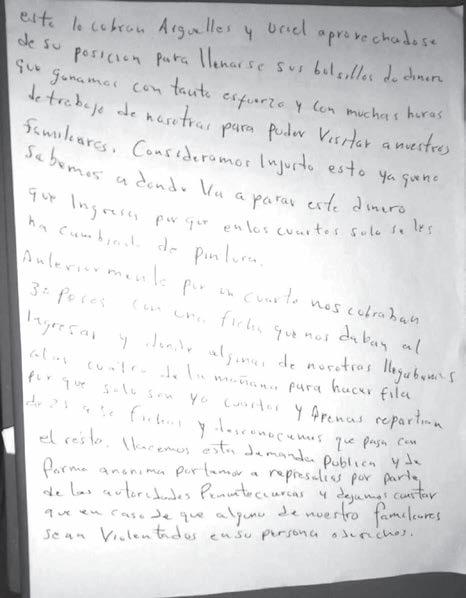 esto lo cobran Arguelles y Uriel aprovechadose
de su posicion para llenarse sus bolsillos de dinero
que ganamos con tanto esfuerzo y con muchas horas
de trabajo de nosotras para poder Visitar a nuestros
familiares. Consideramos Injusto esto ya que no
Sabemos a donde Va a parar este dinero
que Ingresa por que en los cuartos solo se les
ha cambiado de pintura.
Anteriormente por un cuarto nos cobraban
32 pesos con una ficha que nos daban al
Ingresar y donde algunas de nosotras llegabamos
a las cuatro de la mañana para hacer fila
por que solo son 40 cuartos y Apenas repartian
de 25 a 30 fichas y desconocemos que pasa con
el resto. Hacemos esta demanda publica y de
forma anonima por temor a represalias por parte
de las autoridades Penitenciarias y dejamos constar
que en caso de que alguno de nuestro familiares
sean Violentados en su persona o derechos.